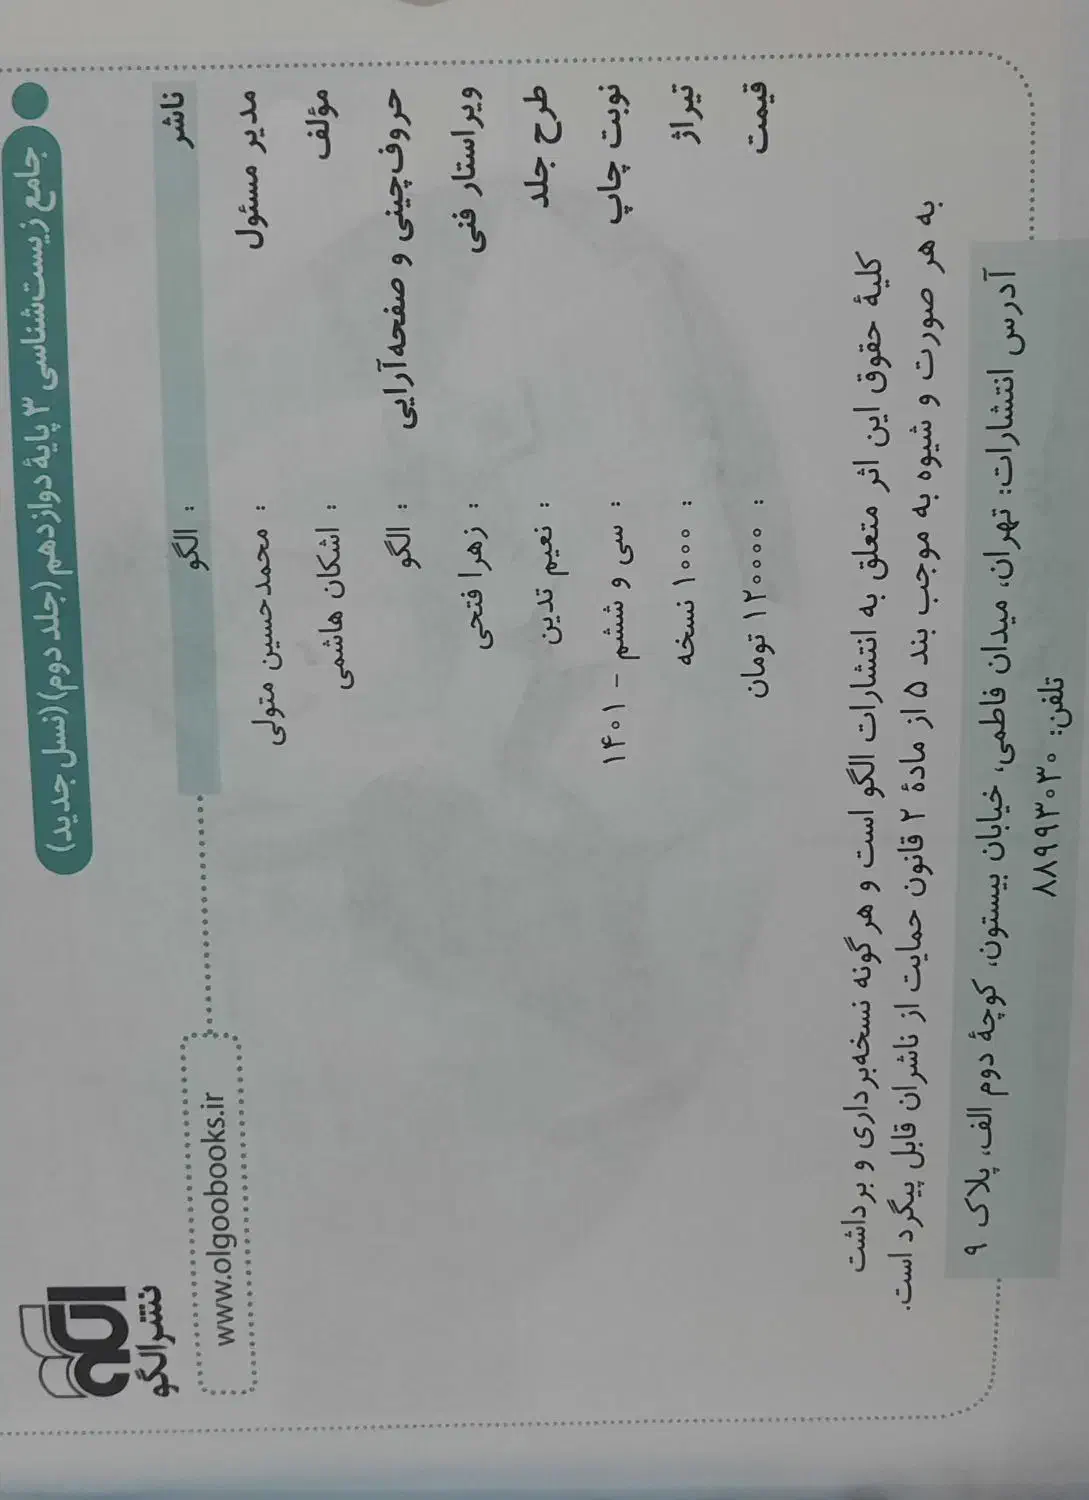 جامع زیست‌شناسی ۳ پایۀ دوازدهم (جلد دوم) (نسل جدید)
نشر الگو
www.olgoobooks.ir
ناشر : الگو
مدیر مسئول : محمدحسین متولی
مؤلف : اشکان هاشمی
حروف‌چینی و صفحه‌آرایی : الگو
ویراستار فنی : زهرا فتحی
طرح جلد : نعیم تدین
نوبت چاپ : سی و ششم - ۱۴۰۱
تیراژ : ۱۰۰۰ نسخه
قیمت : ۱۲۰۰۰۰ تومان
کلیۀ حقوق این اثر متعلق به انتشارات الگو است و هرگونه نسخه‌برداری و برداشت
به هر صورت و شیوه به موجب بند ۵ از مادۀ ۲ قانون حمایت از ناشران قابل پیگرد است.
آدرس انتشارات: تهران، میدان فاطمی، خیابان بیستون، کوچۀ دوم الف، پلاک ۹
تلفن: ۸۸۹۹۳۰۳۰